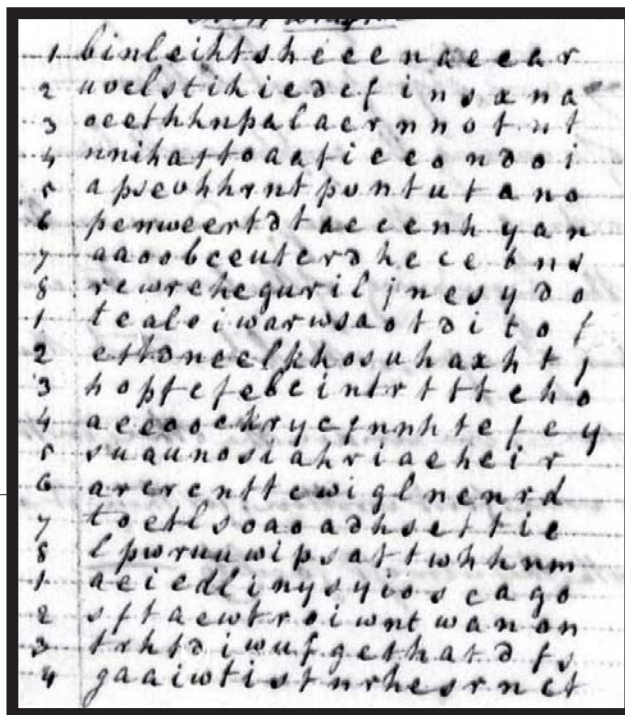 1 binleihtsheeenaeear
2 uvelstihiedefinsxna
3 oeethhnpalaernnotnt
4 nnihattoaaticeondoi
5 apseohhrntpuntutano
6 penweertdtaecenhyan
7 aaoobceuterdhecebns
8 rewrehequriljnesydo
1 tealoiwarwsaotditof
2 ettdneelkhosuhaxhtj
3 hoptefebeintrtttcho
4 aeeooehrycfnnhtefey
5 suaunosiahriaeheir
6 arerenttewiglnenrd
7 toetlsoaoadhsettie
8 lpwrunwipsattwhhnm
1 aeiedlinysyioscago
2 sftaewtroiwntwanon
3 trhtdiwufgethatdfs
4 gaaiwtistnrhesrnct